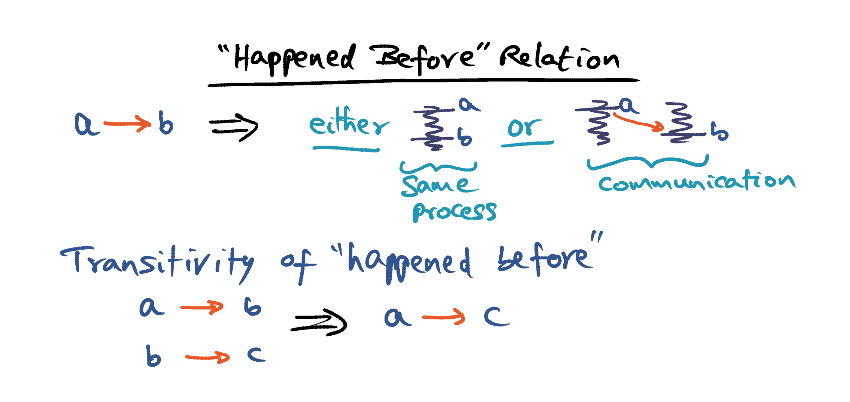 "Happened Before" Relation
a → b ⇒ either a b or a b
Same process
Communication
Transitivity of "happened before"
a → b ⇒ a → c
b → c